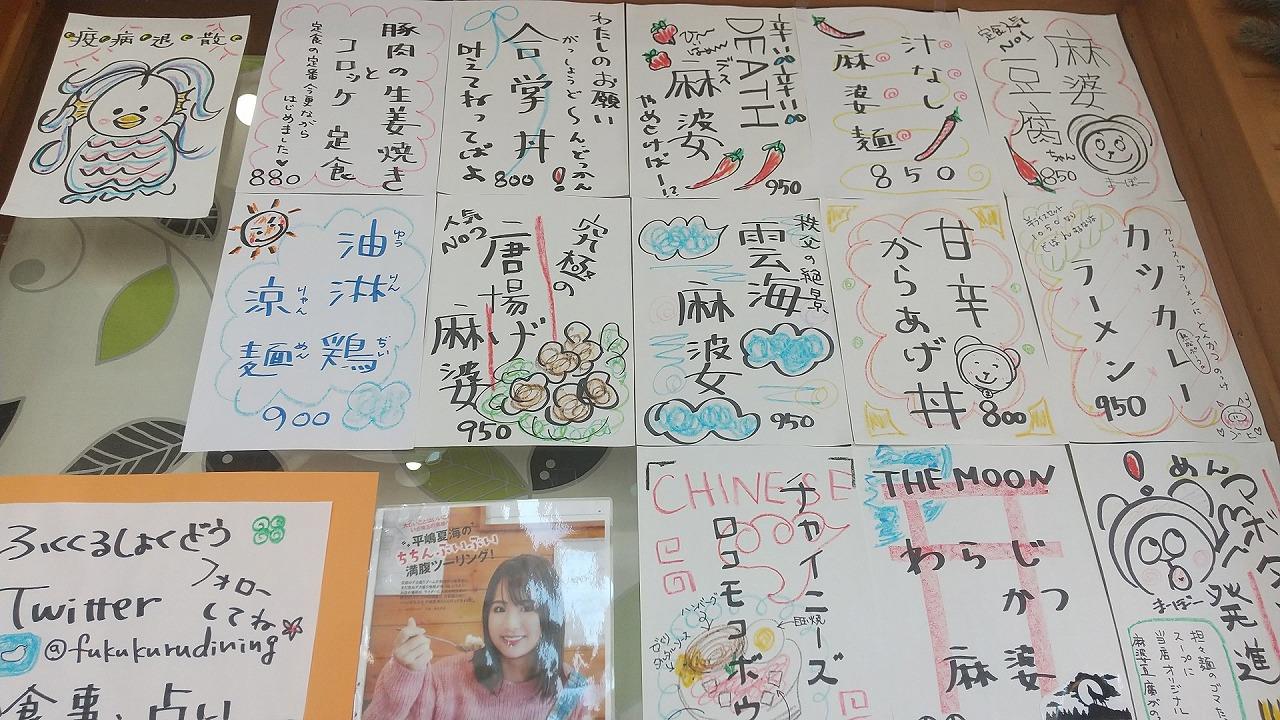 疫病退散
豚肉の生姜焼き
と
コロッケ定食
定食の定番今更ながら
はじめました
880
わたしのお願い
がっしょうど〜んどっかん
合学丼
叶えてねってばよ
800
辛い辛い
DEATH
麻婆
やめとけばー!?
950
汁なし
麻婆麺
850
定食人気
No1
麻婆
豆腐
ちゃん
850
まーぼー
油淋鶏
ゆうりんぢい
涼麺
りゃんめん
900
究極の
唐揚げ
麻婆
人気
No2
950
秩父の絶景
雲海
麻婆
950
甘辛
からあげ丼
800
カレー
カツカレー
ラーメン
950
ふくくるしょくどう
フォロー
してね
Twitter
@fukukurudining
食事、占い
平嶋夏海の
ちちんぷいぷい
満腹ツーリング!
CHINESE
チャイニーズ
ロコモコボウ
ハンバーグ
目玉焼
THE MOON
わらじ
かつ
麻婆
めんつ
ボタ
発進
まーぼー
担々麺のゴマた
スープに
当店オリジナル
麻婆豆腐が